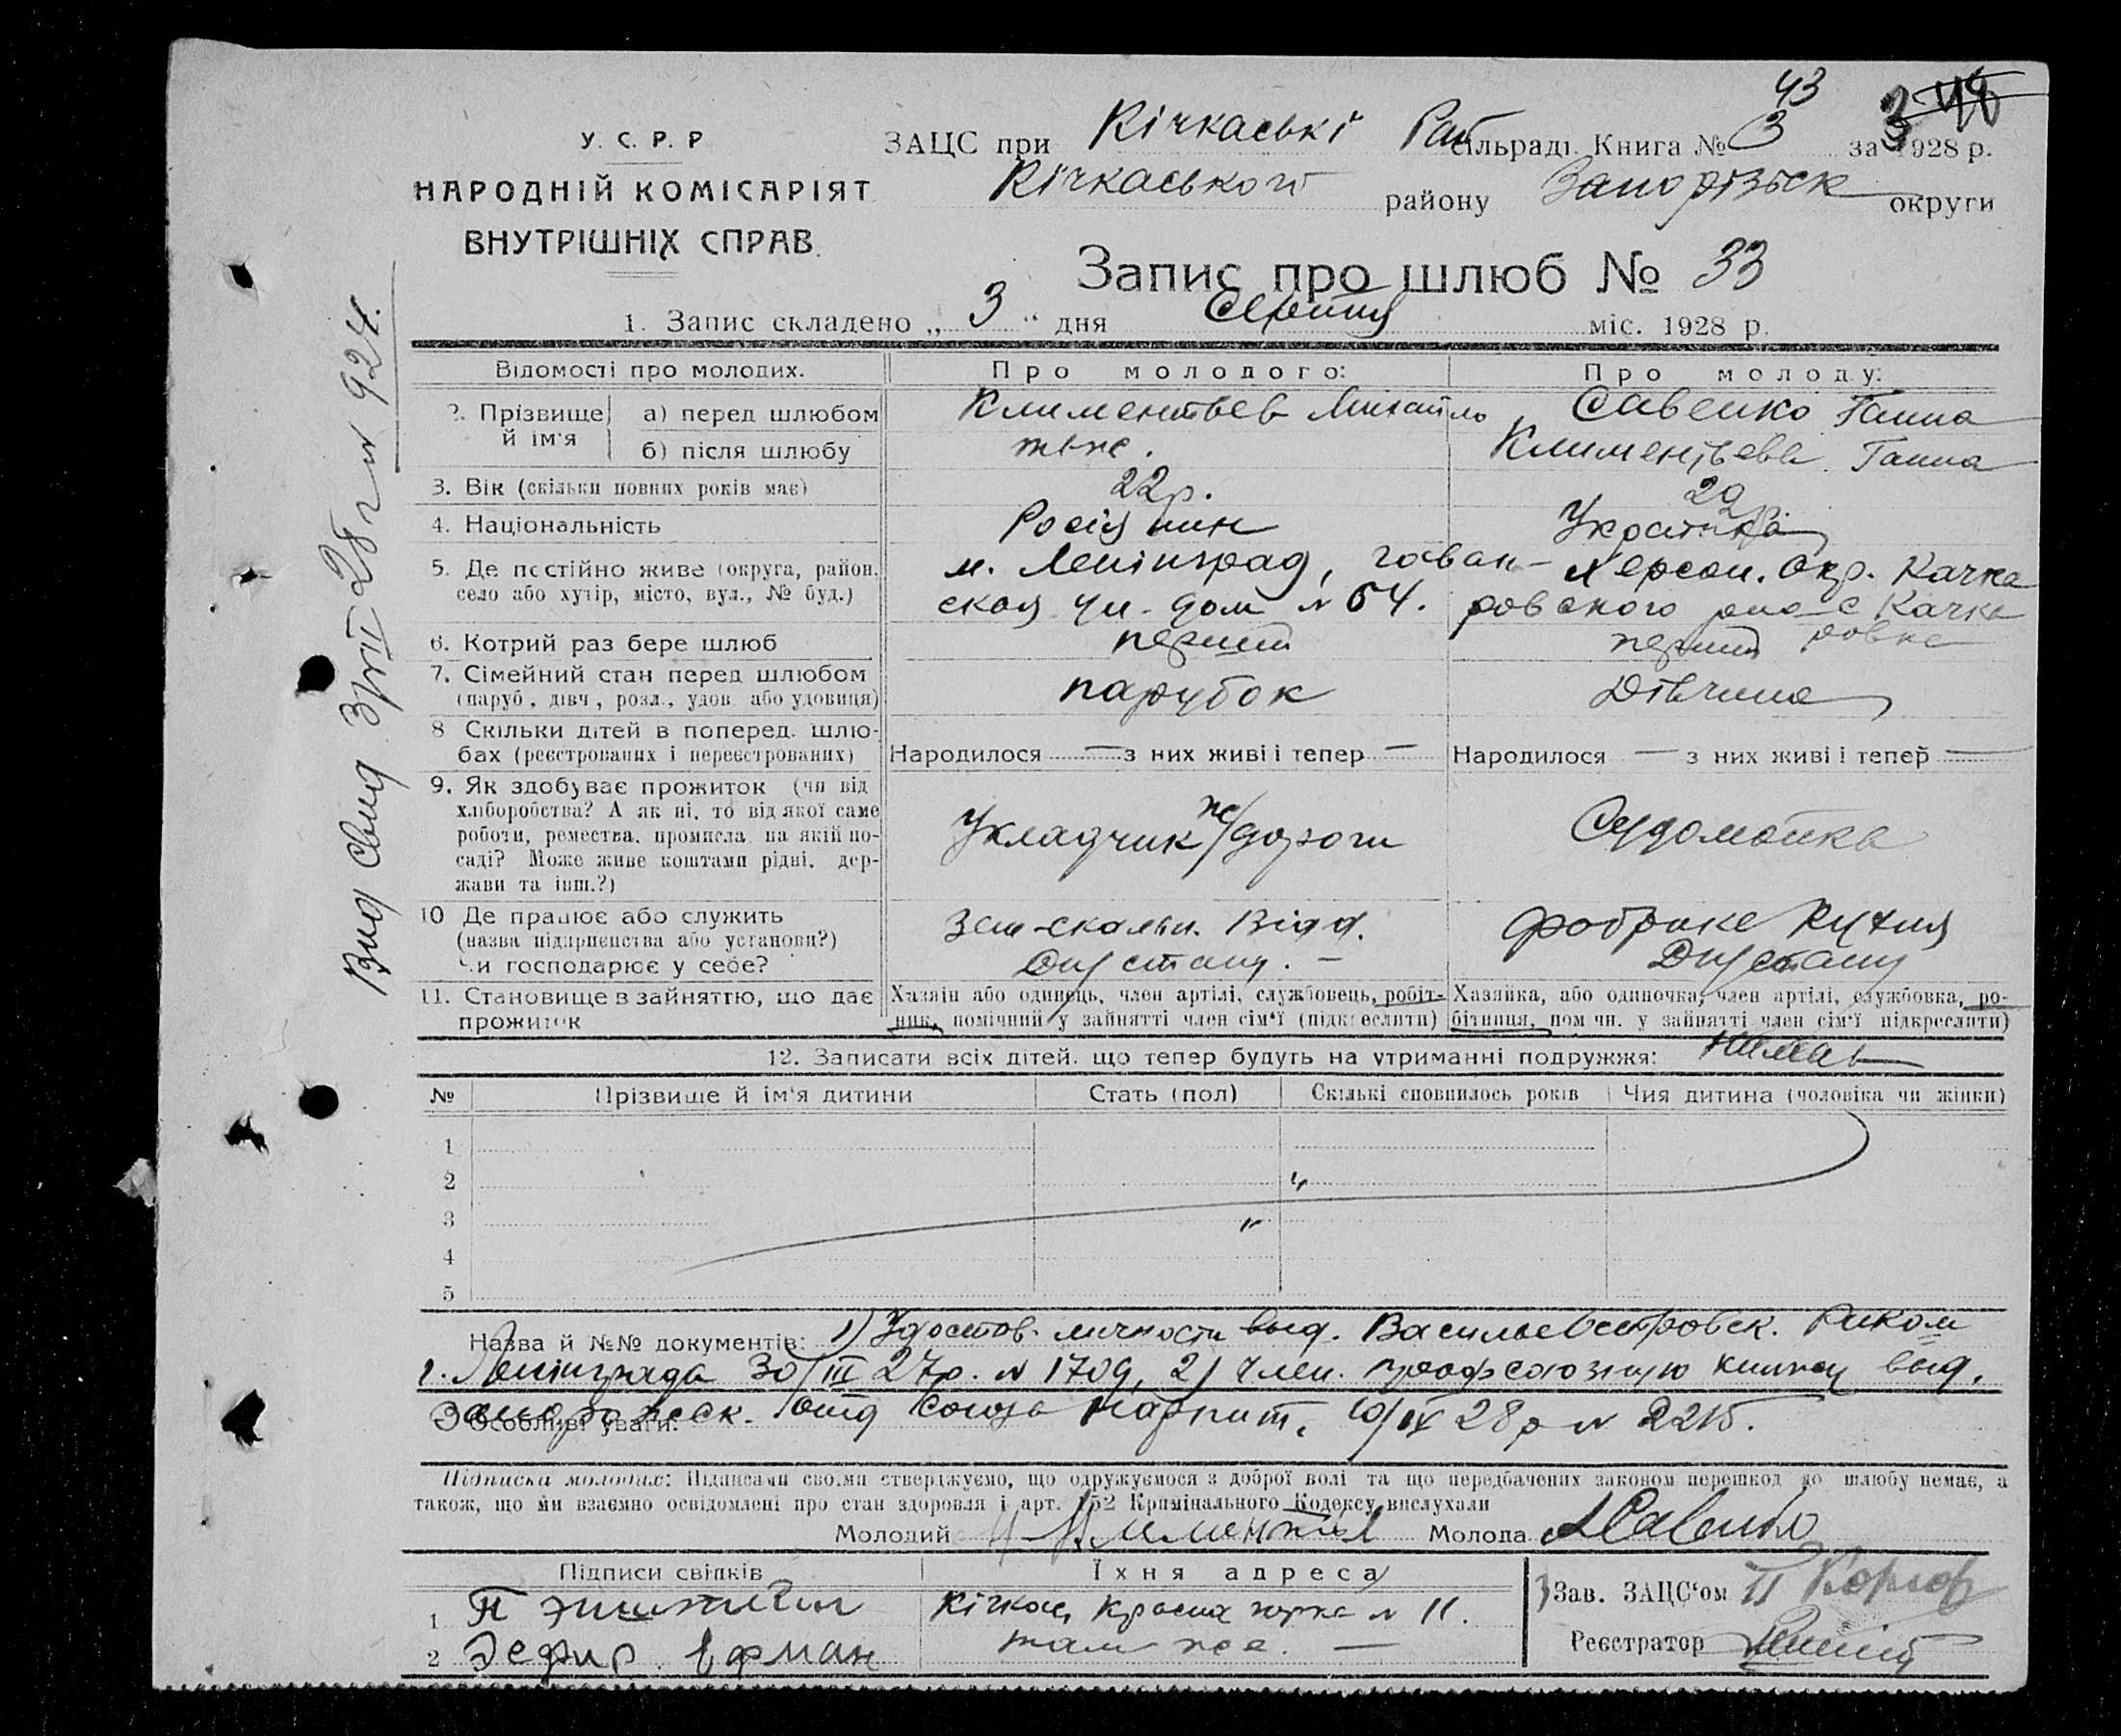 43
3 48
У. С. Р. Р
НАРОДНІЙ КОМІСАРІЯТ
ВНУТРІШНІХ СПРАВ.
ЗАЦС при Кічкаські Рай сільраді. Книга № 3 за 1928 р.
Кічкаського району Запорізьск округи
Запис про шлюб № 33
1. Запис складено „ 3 " дня Серпня міс. 1928 р.
Відомості про молодих. Про молодого: Про молоду:
2. Прізвище й ім'я а) перед шлюбом Климентьев Михайло Савенко Ганна
б) після шлюбу теж. Климентьева Ганна
3. Вік (скільки повних років має) 22 р. 29
4. Національність Росіянин Українка
5. Де постійно живе (округа, район, м. Ленінград, гаван- Херсон. Окр. Качка
село або хутір, місто, вул., № буд.) ская ул. дом № 64. ровского рна с Качка
ровка
6. Котрий раз бере шлюб перший перший
7. Сімейний стан перед шлюбом парубок Дівчина
(паруб., дівч., розл., удов. або удовиця)
8 Скільки дітей в поперед. шлю-
бах (реєстрованих і нереєстрованих) Народилося — з них живі і тепер — Народилося — з них живі і тепер —
9. Як здобуває прожиток (чи від
хліборобства? А як ні, то від якої саме
роботи, ремества, промисла на якій по-
саді? Може живе коштами рідні, дер-
жави та інш.?)
Укладчик ж/дороги Судомойка
10 Де працює або служить Зем-скальн. Відд. Фабрике Кухня
(назва підприємства або установи?) Днепрстану. — Днепрстану
Чи господарює у себе?
11. Становище в зайняттю, що дає Хазяїн або одинець, член артілі, службовець, робіт- Хазяйка, або одиночка, член артілі, службовка, ро-
прожиток ник, помічний у зайнятті член сім'ї (підкреслити) бітниця, помічн. у зайнятті член сім'ї підкреслити)
12. Записати всіх дітей, що тепер будуть на утриманні подружжя: Немає
№ Прізвище й ім'я дитини Стать (пол) Скількі сповнилось років Чия дитина (чоловіка чи жінки)
1
2
3
4
5
Назва й №№ документів: 1) Удостов. личности выд. Васильевостровск. Риком
г. Ленінграда 30/III 27р. № 1709, 2) Член. профсоюзную книжку выд.
Запорожск. отд Союза Нарпит. 10/IX 28 р № 2215.
Особливі уваги:
Підписка молодих: Підписами своїми стверджуємо, що одружуємося з доброї волі та що передбачених законом перешкод до шлюбу немає, а
також, що ми взаємно освідомлені про стан здоровля і арт. 152 Кримінального Кодексу вислухали
Молодий Молода Савенко
Підписи свідків Їхня адреса Зав. ЗАЦС'ом
1 Кічкас, Красна горка № 11.
2 там же. — Реєстратор
Вид Свид 3/VIII 28 г № 924.